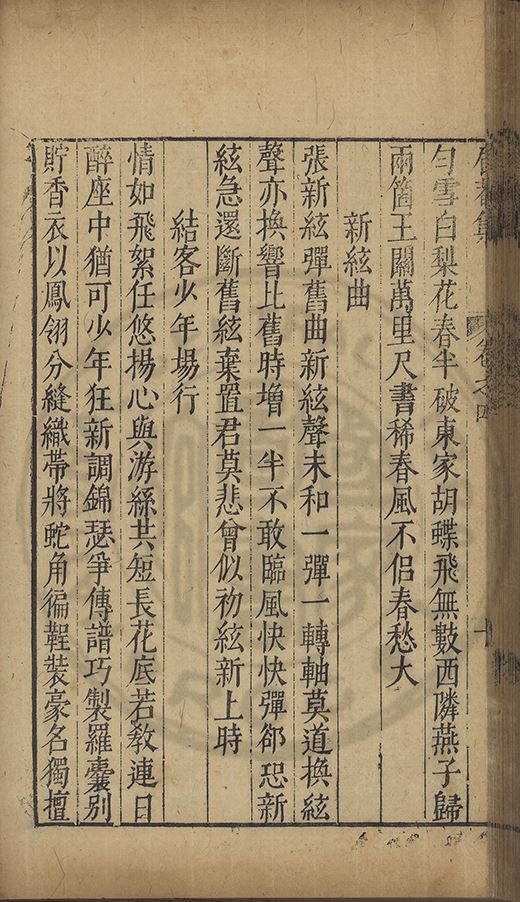 卷之四
十
勻雪白梨花春半破東家胡蝶飛無數西隣燕子歸
兩箇王關萬里尺書稀春風不侣春愁大
新絃曲
張新絃彈舊曲新絃聲未和一彈一轉軸莫道換絃
聲亦換響比舊時增一半不敢臨風快快彈郤恐新
絃急還斷舊絃棄置君莫悲曾似初絃新上時
結客少年場行
情如飛絮任悠揚心與游絲共短長花底若教連日
醉座中猶可少年狂新調錦瑟爭傳譜巧製羅囊别
貯香衣以鳳翎分縫織帶將蛇角徧鞓裝豪名獨擅